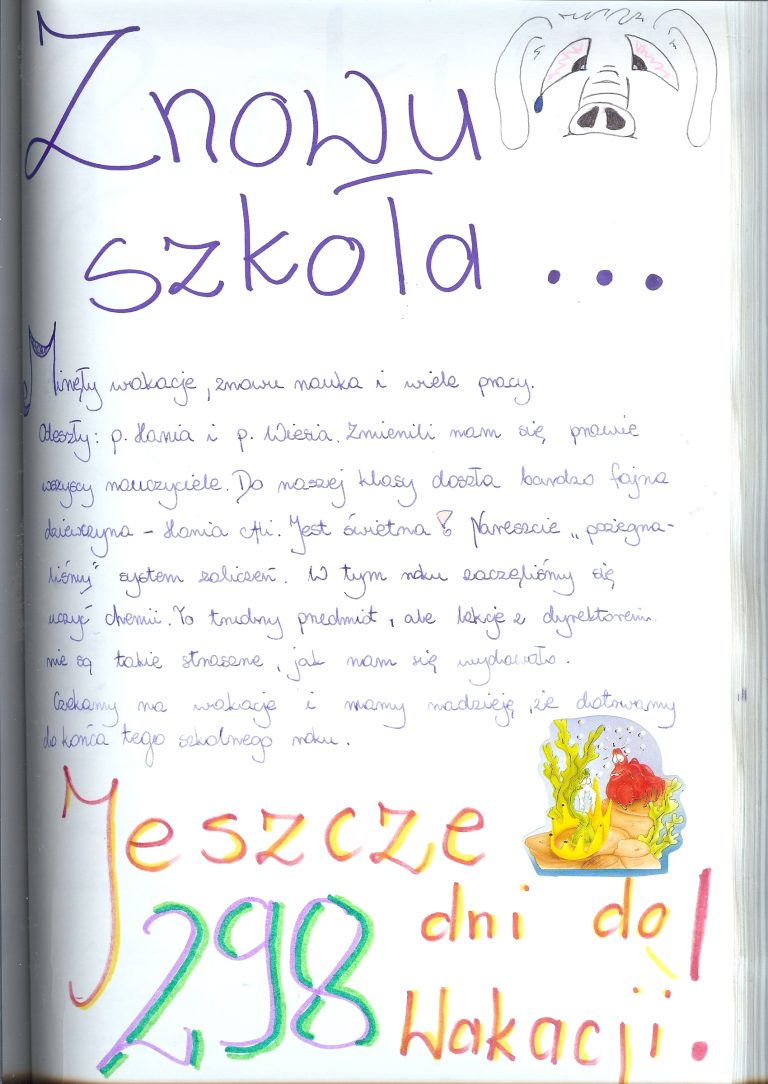 Znowu
szkoła...
Minęły wakacje, znowu nauka i wiele pracy.
Odeszły: p. Hania i p. Wiesia. Zmienili nam się prawie
wszyscy nauczyciele. Do naszej klasy doszła bardzo fajna
dziewczyna - Hania Ali. Jest świetna! Nareszcie „pożegna-
liśmy” system zaliczeń. W tym roku zaczęliśmy się
uczyć chemii. To trudny przedmiot, ale lekcje z dyrektorem
nie są takie straszne, jak nam się wydawało.
Czekamy na wakacje i mamy nadzieję, że dotrwamy
do końca tego szkolnego roku.
Jeszcze
298 dni do
Wakacji!